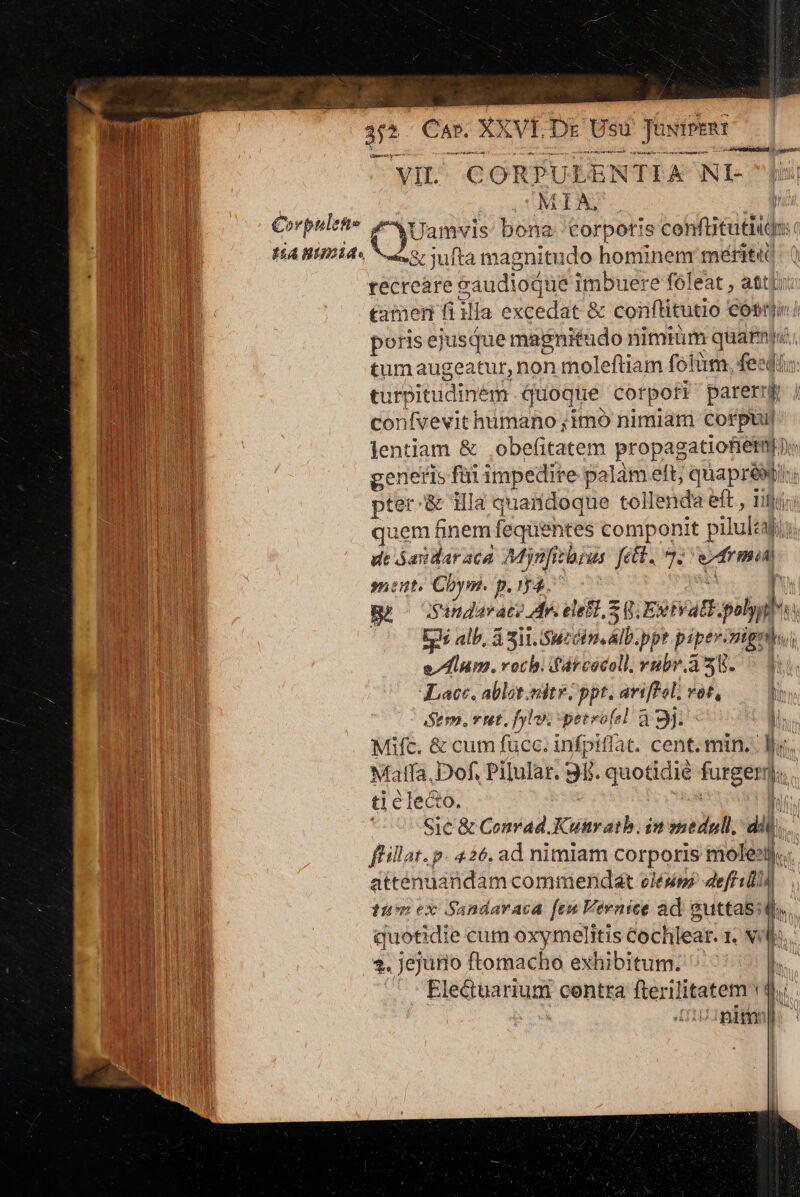 352 CAP. XXVI. DE USU JUNIPERI
VII. CORPULENTIA NI-
MIA.
Corpulen-
tia nimia.
QUamvis bona corporis conſtituti
& juſta magnitudo hominem meritò
recreare gaudioque imbuere ſoleat, at
tamen ſi illa excedat & conſtitutio cor
poris ejusque magnitudo nimiùm quan
tum augeatur, non moleſtiam ſolùm, ſed
turpitudinem quoque corpori parere
conſvevit humano; imò nimiam corpu
lentiam & obeſitatem propagationem
generis ſui impedire palàm eſt; quapro
pter & illa quandoque tollenda eſt, in
quem finem ſequentes componit pilulas
de Sandaraca Mynſichtus ſect. 7. Arma
ment. Chym. p. 154.
℞ Sandaracæ Ar. elect. ℥ ß. Extract. polyp
alb. ā ʒii. Succin. alb. ppt piper. nigr
Alum. roch. Sarcocoll. rubr. ā ʒß.
Lacc. ablut. nitr. ppt. ariſtol. rot.
Sem. rut. ſylv. petroſel ā ℈j.
Miſc. & cum ſucc. inſpiſſat. cent. min.
Maſſa. Doſ. Pilular. ℈ß. quotidiè ſurgen
ti è lecto.
Sic & Conrad. Kunrath. in medull. di
ſtillat. p. 426. ad nimiam corporis mole
attenuandam commendat oleum deſtilla
tum ex Sandaraca ſeu Vernice ad guttas
quotidie cum oxymelitis cochlear. 1. v
2. jejuno ſtomacho exhibitum.
Electuarium contra ſterilitatem
nim